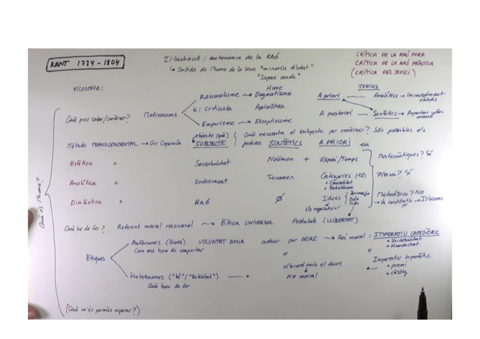 KANT 1724 - 1804
Il·lustració: autonomia de la RAÓ
Sortida de l'home de la seva "minoria d'edat"
"Sapere aude"
CRÍTICA DE LA RAÓ PURA
CRÍTICA DE LA RAÓ PRÀCTICA
(CRÍTICA DEL JUDICI)
FILOSOFIA:
JUDICIS
Racionalisme → Dogmatisme
A priori
Analítics →
Què puc saber/conèixer?
K: Criticisme
Apriorisme
Empirisme → Escepticisme
Hume
A posteriori
Sintètics →
Mètode TRANSCENDENTAL → Gir Copernicà
SUBJECTE
Què necessita el subjecte per conèixer?
Són possibles els
judicis SINTÈTICS A PRIORI en
Estètica " Sensibilitat Noümen + Espai/Temps
Matemàtiques? Sí
Analítica " Enteniment Fenomen Categories (12)
Física? Sí
Dialèctica " Raó Ø Idees
Metafísica? No
Què és l'home?
Què he de fer? Referent moral racional → Ètica UNIVERSAL Postulats (LLIBERTAT)
Ètiques
Autònomes VOLUNTAT BONA actuar per DEURE → Llei moral: IMPERATIU CATEGÒRIC
Com ens hem de comportar
• Universalitat
• Humanitat
Heterònomes
Què hem de fer
d'acord amb el deure
o NO moral
Imperatiu hipotètic
• premi
• càstig
(Què m'és permès esperar?)